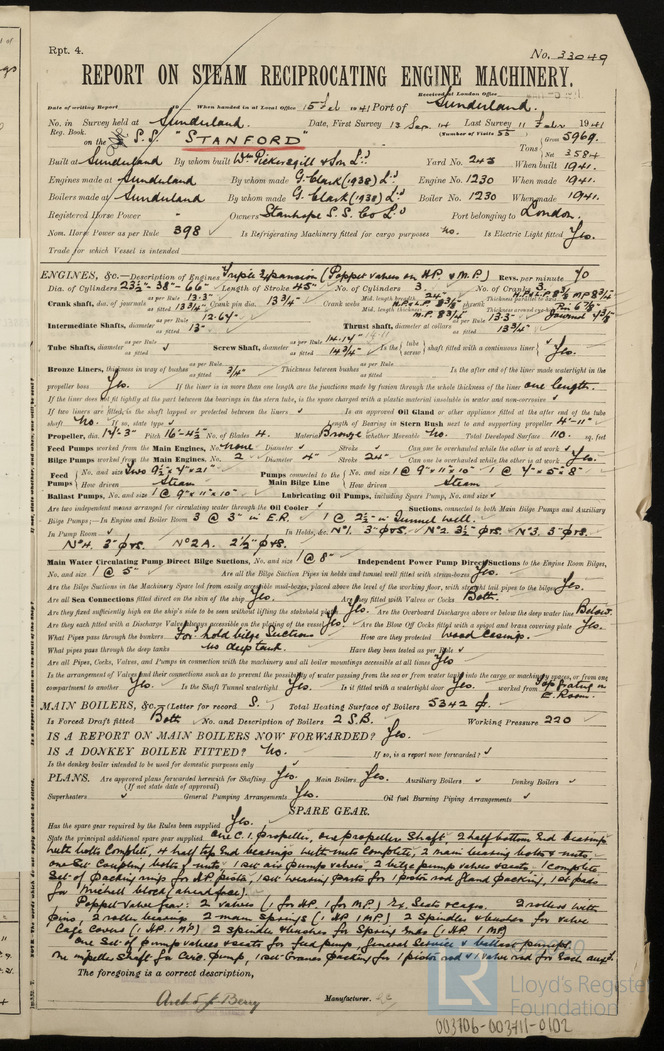 Rpt. 4.
No. 33049
REPORT ON STEAM RECIPROCATING ENGINE MACHINERY.
Received at London Office
Date of writing Report When handed in at Local Office 15 Feb 1941 Port of Sunderland.
No. in Survey held at Sunderland Date, First Survey 13 Sep. Last Survey 11 Febr 1941
Reg. Book. (Number of Visits 53)
on the S.S. "STANFORD" Tons Gross 5969. Net 3584
Built at Sunderland By whom built Wm Pickersgill & Son Ld. Yard No. 243 When built 1941.
Engines made at Sunderland By whom made G. Clark (1938) Ld. Engine No. 1230 When made 1941.
Boilers made at Sunderland By whom made G. Clark (1938) Ld. Boiler No. 1230 When made 1941.
Registered Horse Power Owners Stanhope S.S. Co Ld. Port belonging to London.
Nom. Horse Power as per Rule 398 Is Refrigerating Machinery fitted for cargo purposes No. Is Electric Light fitted Yes.
Trade for which Vessel is intended
ENGINES, &c.—Description of Engines Triple Expansion (Poppet valves on H.P. & M.P.) Revs. per minute 70
Dia. of Cylinders 23½"-38"-66" Length of Stroke 45" No. of Cylinders 3. No. of Cranks 3.
Crank shaft, dia. of journals as per Rule 13.3" as fitted 13¾" Crank pin dia. 13¾" Crank webs Mid. length breadth 24" Mid. length thickness shrunk Thickness parallel to axis
Intermediate Shafts, diameter as per Rule 12.64" as fitted 13" Thrust shaft, diameter at collars as per Rule 13.3" as fitted 13¾"
Tube Shafts, diameter as per Rule as fitted Screw Shaft, diameter as per Rule 14.14" as fitted 14¾" Is the tube screw shaft fitted with a continuous liner Yes.
Bronze Liners, thickness in way of bushes as per Rule as fitted ¾" Thickness between bushes as per Rule as fitted Is the after end of the liner made watertight in the
propeller boss Yes. If the liner is in more than one length are the junctions made by fusion through the whole thickness of the liner one length.
If the liner does not fit tightly at the part between the bearings in the stern tube, is the space charged with a plastic material insoluble in water and non-corrosive
If two liners are fitted, is the shaft lapped or protected between the liners Is an approved Oil Gland or other appliance fitted at the after end of the tube
shaft No. If so, state type Length of Bearing in Stern Bush next to and supporting propeller 4'-11"
Propeller, dia. 17'-3" Pitch 16'-4½" No. of Blades 4. Material Bronze whether Moveable No. Total Developed Surface 110. sq. feet
Feed Pumps worked from the Main Engines, No. None Diameter Stroke Can one be overhauled while the other is at work
Bilge Pumps worked from the Main Engines, No. 2 Diameter 4" Stroke 24" Can one be overhauled while the other is at work Yes.
Feed Pumps No. and size Two 9½" x 7" x 21" How driven Steam Pumps connected to the Main Bilge Line No. and size 1 @ 9" x 11" x 10" 1 @ 7" x 5" x 8" How driven Steam
Ballast Pumps, No. and size 1 @ 9" x 11" x 10" Lubricating Oil Pumps, including Spare Pump, No. and size
Are two independent means arranged for circulating water through the Oil Cooler Suctions, connected to both Main Bilge Pumps and Auxiliary
Bilge Pumps;—In Engine and Boiler Room 3 @ 3" in E.R. 1 @ 2½" in Tunnel well.
In Pump Room In Holds, &c. No 1. 3" Prs. No 2. 3½" Prs. No 3. 3" Prs.
No 4. 3" Prs. No 2A. 2½" Prs.
Main Water Circulating Pump Direct Bilge Suctions, No. and size 1 @ 8" Independent Power Pump Direct Suctions to the Engine Room Bilges,
No. and size 1 @ 5" Are all the Bilge Suction Pipes in holds and tunnel well fitted with strum-boxes Yes.
Are the Bilge Suctions in the Machinery Space led from easily accessible mud-boxes, placed above the level of the working floor, with straight tail pipes to the bilges Yes.
Are all Sea Connections fitted direct on the skin of the ship Yes. Are they fitted with Valves or Cocks Both.
Are they fixed sufficiently high on the ship's side to be seen without lifting the stokehold plates Yes. Are the Overboard Discharges above or below the deep water line Below.
Are they each fitted with a Discharge Valve always accessible on the plating of the vessel Yes. Are the Blow Off Cocks fitted with a spigot and brass covering plate Yes.
What Pipes pass through the bunkers For'd hold bilge suctions How are they protected Wood Casings.
What pipes pass through the deep tanks No deep tank. Have they been tested as per Rule
Are all Pipes, Cocks, Valves, and Pumps in connection with the machinery and all boiler mountings accessible at all times Yes
Is the arrangement of Valves and their connections such as to prevent the possibility of water passing from the sea or from water tanks into the cargo or machinery spaces, or from one
compartment to another Yes. Is the Shaft Tunnel watertight Yes. Is it fitted with a watertight door Yes. worked from Top Grating in E. Room.
MAIN BOILERS, &c.—(Letter for record S.) Total Heating Surface of Boilers 5342 ф.
Is Forced Draft fitted Both No. and Description of Boilers 2 S.B. Working Pressure 220
IS A REPORT ON MAIN BOILERS NOW FORWARDED? Yes.
IS A DONKEY BOILER FITTED? No. If so, is a report now forwarded?
Is the donkey boiler intended to be used for domestic purposes only
PLANS. Are approved plans forwarded herewith for Shafting Yes. Main Boilers Yes. Auxiliary Boilers Donkey Boilers
(If not state date of approval)
Superheaters General Pumping Arrangements Yes. Oil fuel Burning Piping Arrangements
SPARE GEAR.
Has the spare gear required by the Rules been supplied Yes.
State the principal additional spare gear supplied One C.I. propeller, one propeller shaft, 2 half bottom end bearings
with bolts complete, 4 half top end bearings with nuts complete, 2 main bearing bolts & nuts,
one set coupling bolts & nuts, 1 set air pump valves, 2 bilge pump valves & seats, 1 complete
set of packing rings for H.P. piston, 1 set wearing parts for 1 piston rod gland packing, 1 set pads
for Michell block (ahead face).
Poppet valve gear: 2 valves (1 for H.P. 1 for M.P.) Seats & cages. 2 rollers with
pins, 2 roller bearings 2 main springs (1 H.P. 1 M.P.) 2 spindles & bushes for valve
cage covers (1 H.P. 1 M.P.) 2 spindles & bushes for spring ends (1 H.P. 1 M.P.)
One set of pump valves & seats for feed pump, general service & ballast pumps.
One impeller shaft for circ. pump, 1 set Cranes packing for 1 piston rod & 1 valve rod for each auxy.
The foregoing is a correct description,
Manufacturer.
Lloyd's Register
Foundation
003706-003711-0102